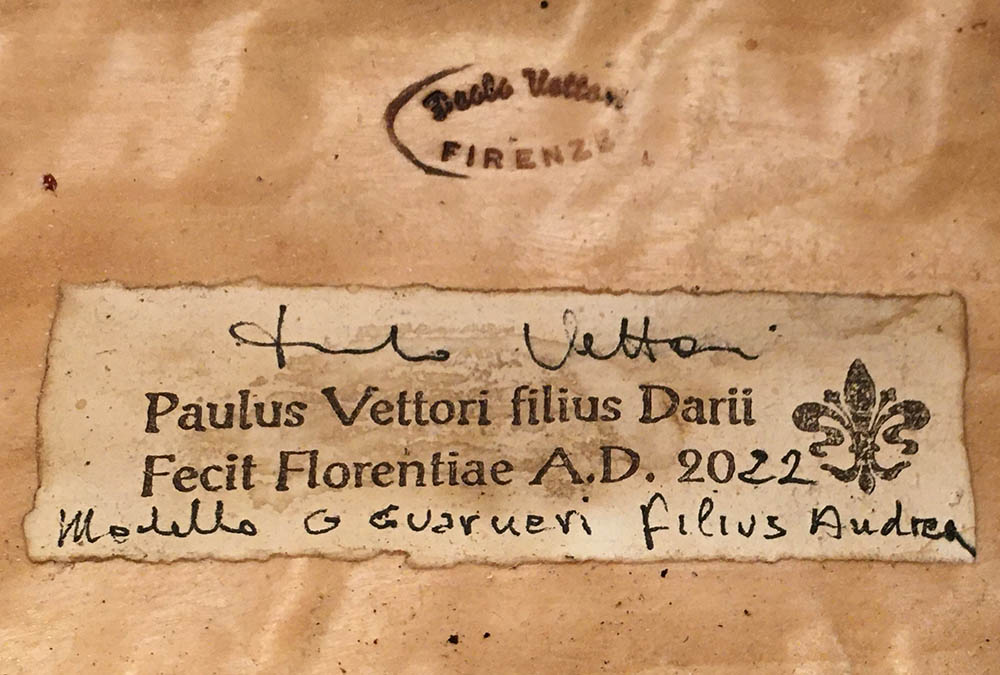 Paolo Vettori
FIRENZE
Paolo Vettori
Paulus Vettori filius Darii
Fecit Florentiae A.D. 2022
Modello G Guarneri filius Andrea